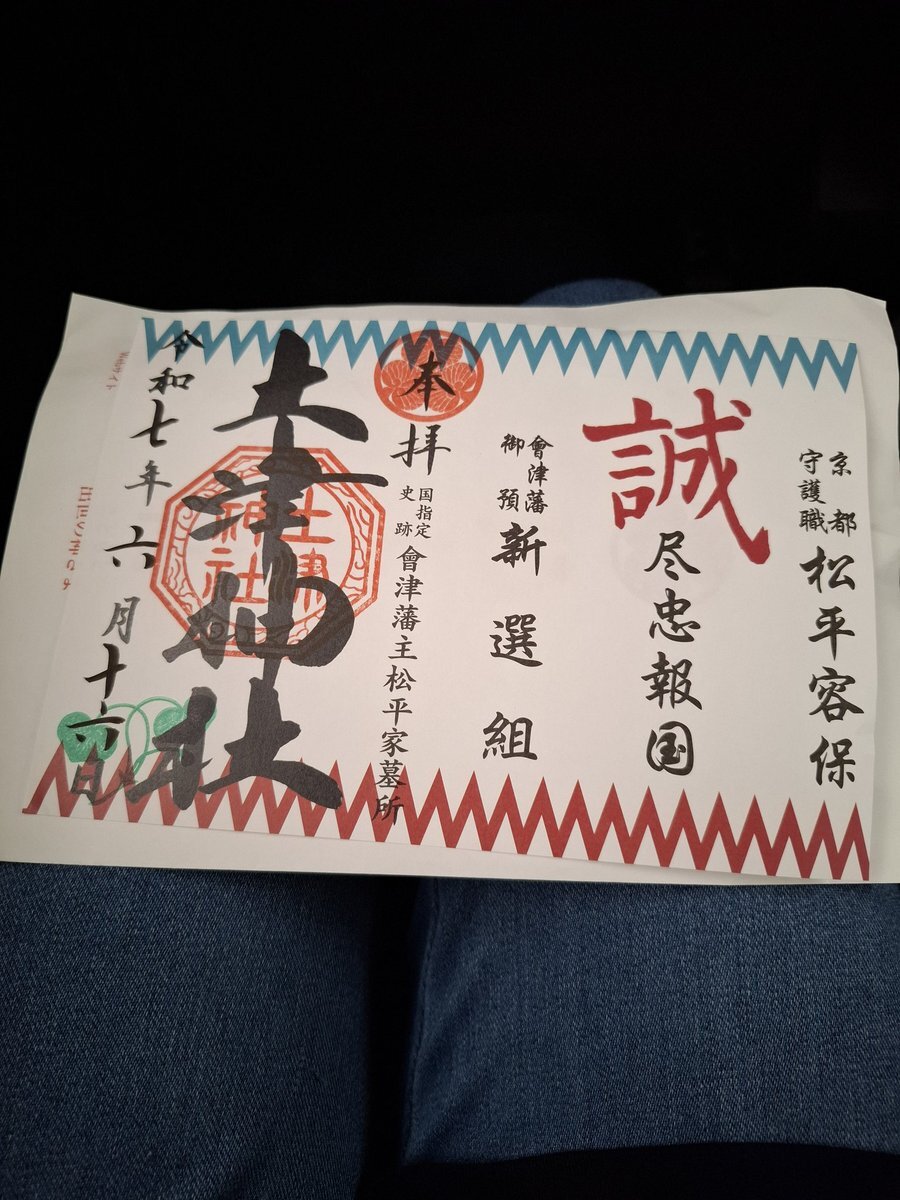 京都
守護職
松平容保
誠
尽忠報国
會津藩
御預
新選組
奉拝
国指定
史跡
會津藩主松平家墓所
土津神社
土津
神社
令和七年六月十六日